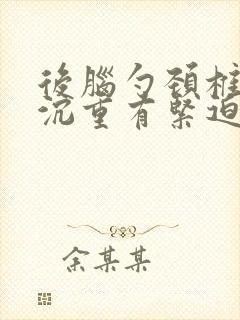 後腦勺頸椎
沉重有緊迫
余某某